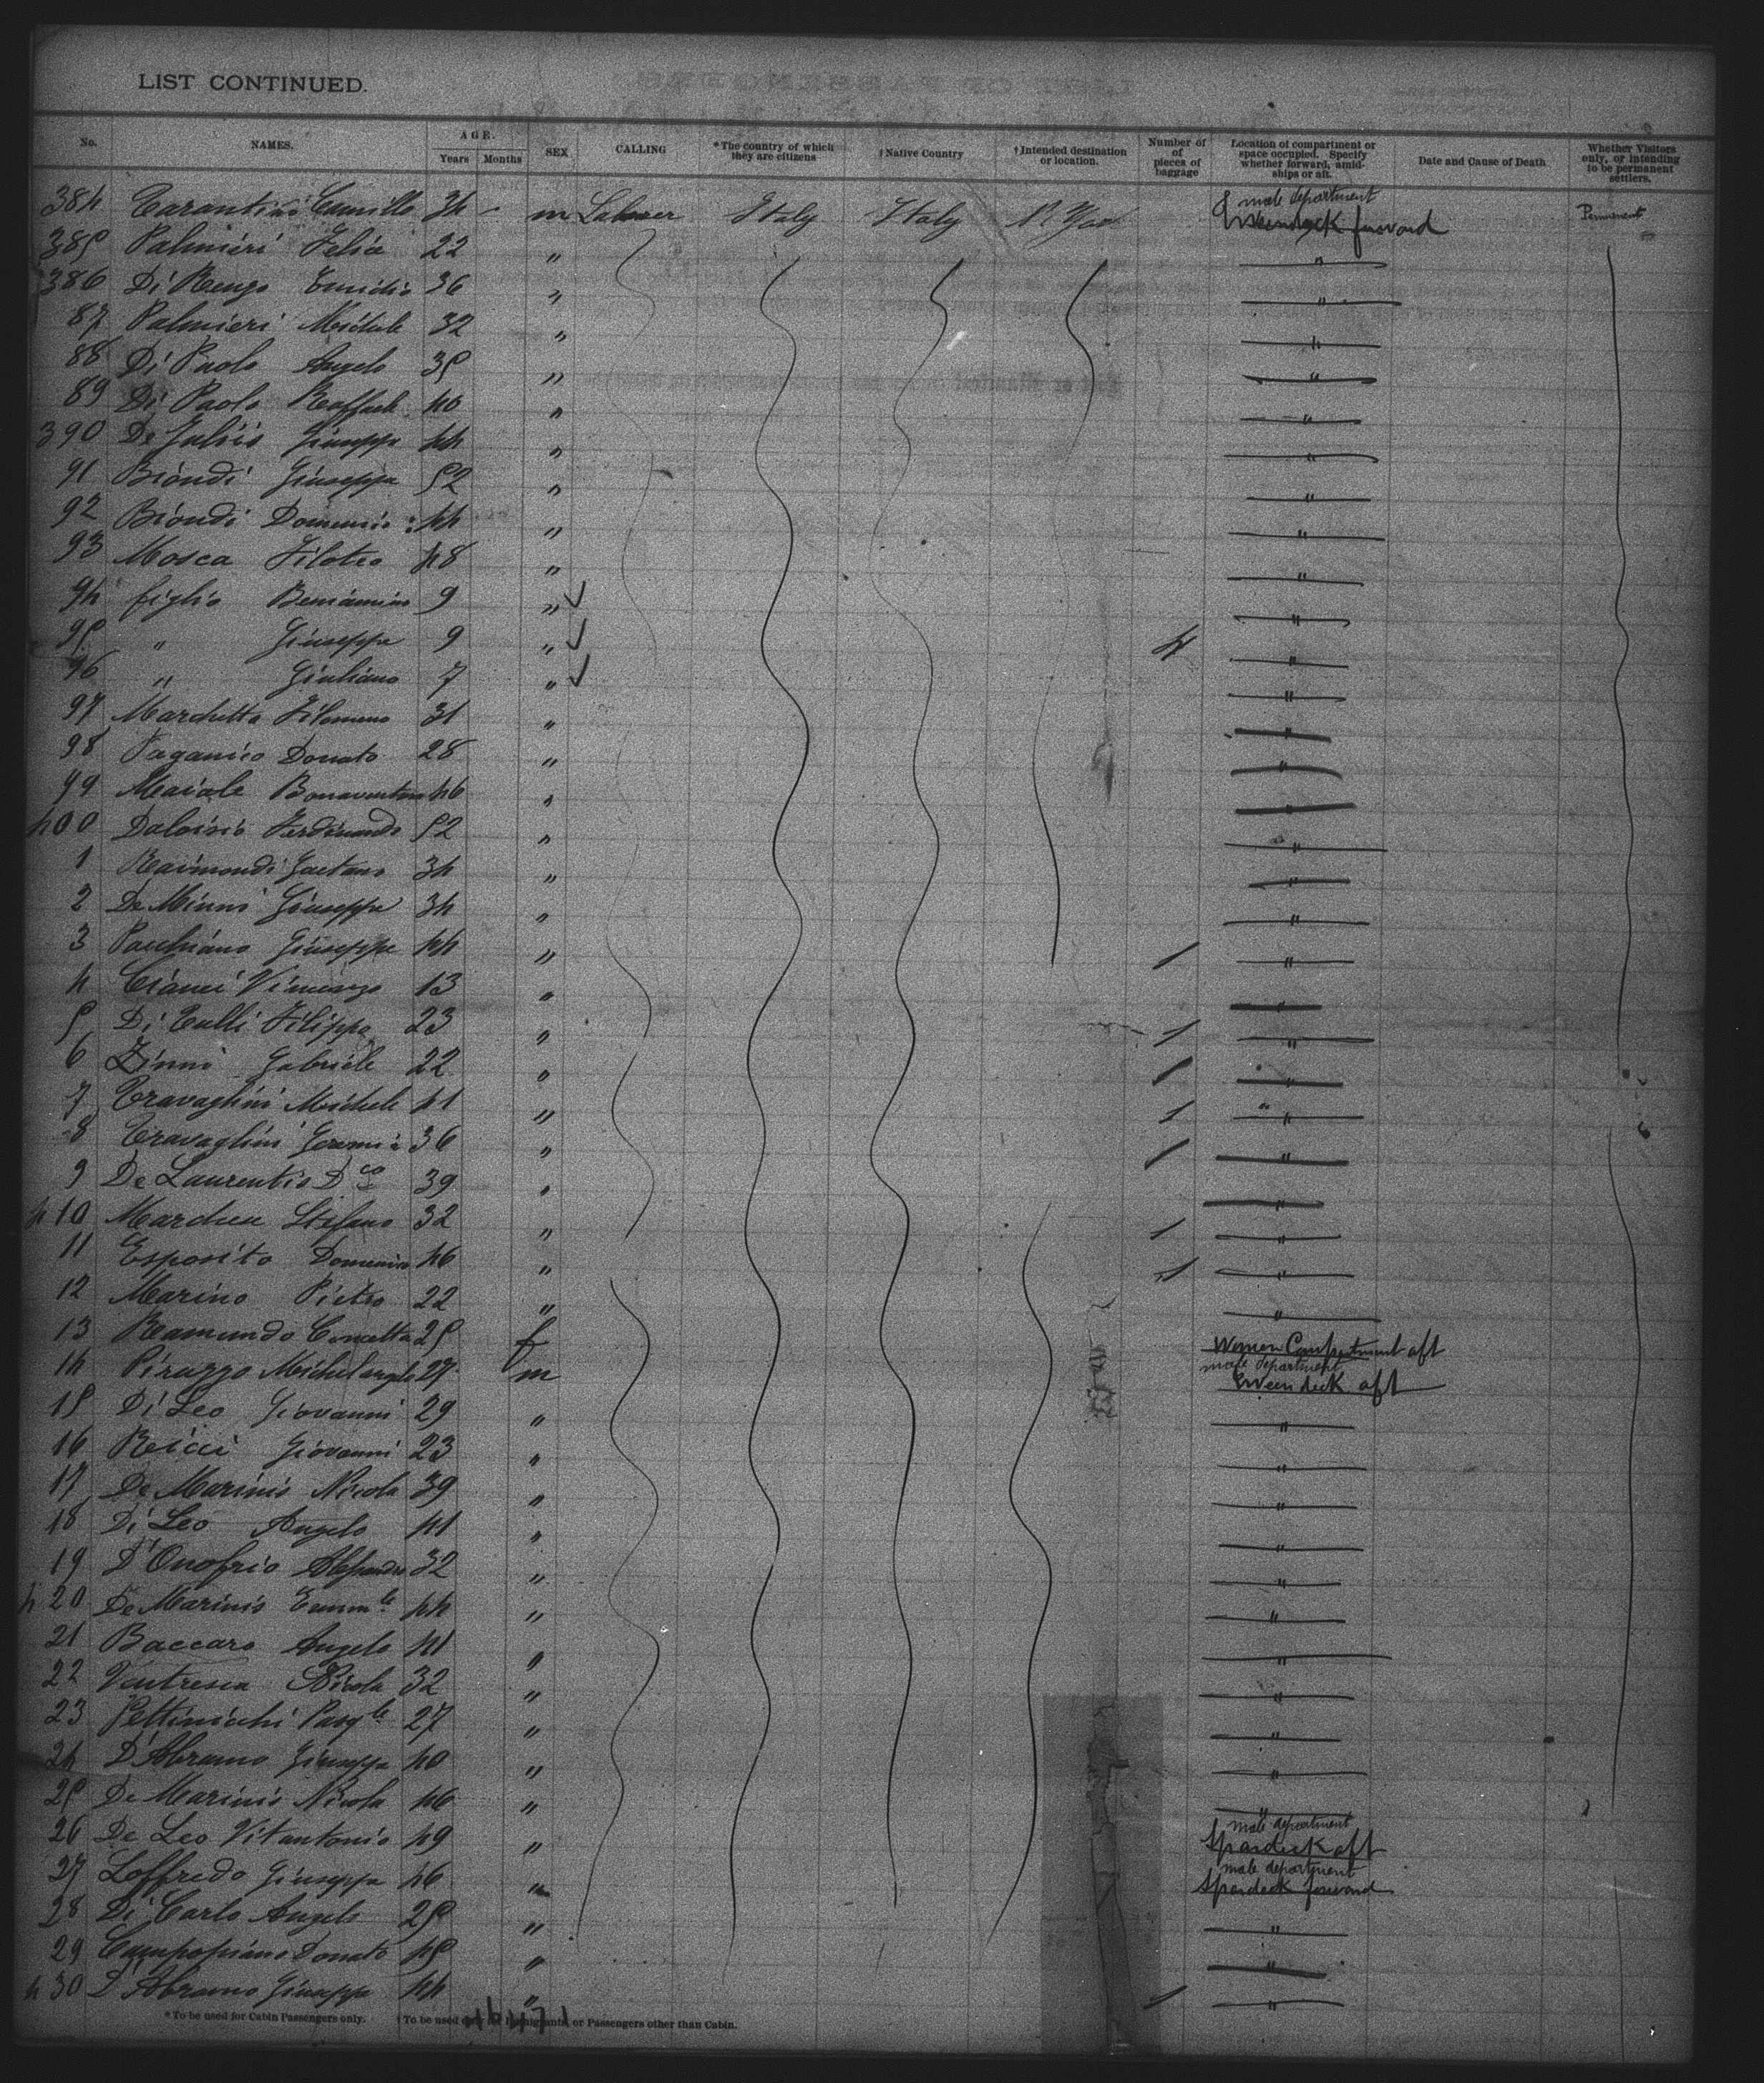 LIST CONTINUED.
No. NAMES. AGE. Years Months SEX CALLING *The country of which they are citizens †Native Country †Intended destination or location. Number of of pieces of baggage Location of compartment or space occupied. Specify whether forward, amid-ships or aft. Date and Cause of Death Whether Visitors only, or intending to be permanent settlers.
384 Tarantino Camillo 34 - m Laborer Italy Italy N. York male department forward Permanent
385 Palmieri Felice 22 " "
386 Di Renzo Emidio 36 " "
87 Palmieri Michele 32 " "
88 Di Paolo Angelo 35 " "
89 Di Paolo Raffaele 40 " "
390 De Julsis Giuseppe 44 " "
91 Biondi Giuseppe 52 " "
92 Biondi Domenico 44 " "
93 Mosca Filoteo 48 " "
94 figlio Beniamino 9 " "
95 " Giuseppe 9 " 4 "
96 " Giuliano 7 " "
97 Marchetta Filomeno 31 " "
98 Paganico Donato 28 " "
99 Maiale Bonaventura 46 " "
400 Daloisio Ferdinando 52 " "
1 Raimondi Gaetano 34 " "
2 De Minni Giuseppe 34 " "
3 Giuseppe 44 " 1 "
4 Cianci Vincenzo 13 " "
5 Di Tulli Filippo 23 " 1 "
6 Zinni Gabriele 22 " 1 "
7 Travaglini Michele 41 " 1 "
8 Travaglini Geremia 36 " 1 "
9 De Laurentis Dco 39 " "
410 Stefano 32 " 1 "
11 Esposito Domenico 46 " 1 "
12 Marino Pietro 22 " "
13 Ramundo Concetta 25 f Women Compartment aft
14 Pirazzo Michelangelo 27 m male department tweendeck aft
15 Di Leo Giovanni 29 " "
16 Ricci Giovanni 23 " "
17 De Marinis Nicola 39 " "
18 Di Leo Angelo 41 " "
19 D'Onofrio Alessandro 32 " "
420 De Marinis Emmle 44 " "
21 Baccaro Angelo 41 " "
22 Ventresca Nicola 32 " "
23 Pettinicchi Pasqle 27 " "
24 D'Abramo Giuseppe 40 " "
25 De Marinis Nicola 46 " "
26 De Leo Vitantonio 49 " male department Spardeck aft
27 Loffredo Giuseppe 46 " male department Spardeck forward
28 Di Carlo Angelo 25 " "
29 Campopiano Donato 45 " "
430 D'Abramo Giuseppe 44 " 1 "
*To be used for Cabin Passengers only. †To be used only for Immigrants, or Passengers other than Cabin.